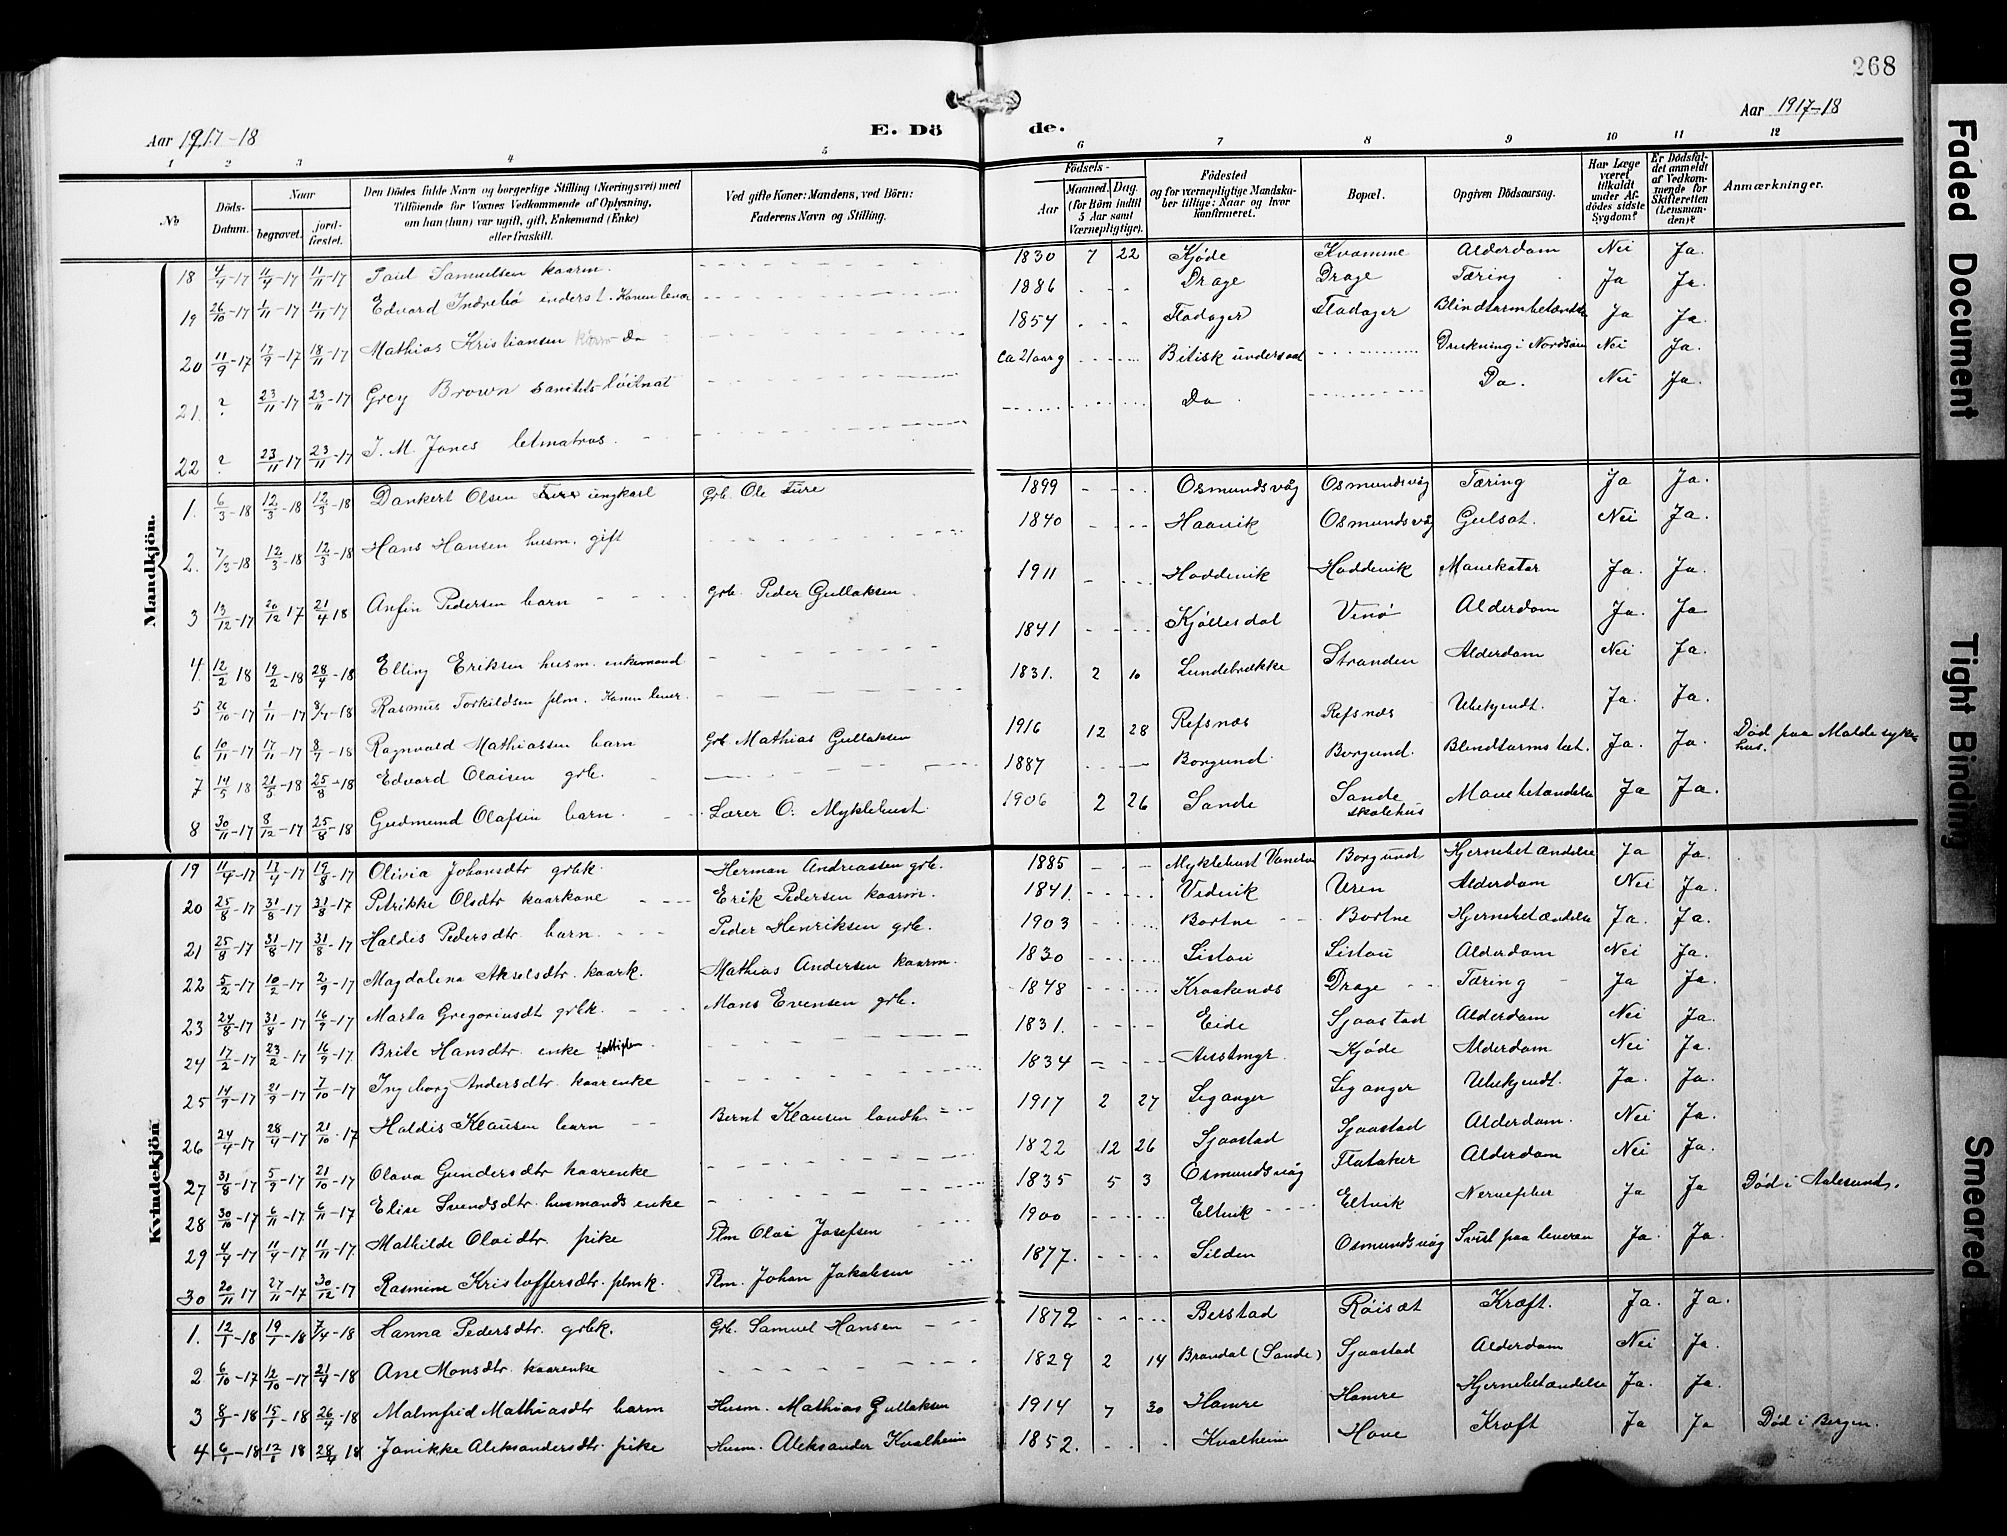 268
Aar 1917-18
E. Dö de.
Aar 1917-18
1 2 3 4 5 6 7 8 9 10 11 12
No
Döds-Datum.
Naar
begravet.
jord-fæstet.
Den Dödes fulde Navn og borgerlige Stilling (Næringsvei) med
Tilföiende for Voxnes Vedkommende af Oplysning,
om han (hun) var ugift, gift, Enkemand (Enke)
eller fraskilt.
Ved gifte Koner: Mandens, ved Börn:
Faderens Navn og Stilling.
Födsels-
Aar
Maaned. Dag.
(for Börn indtil
5 Aar samt
Værnepligtige).
Födested
og for værnepligtige Mandska-
ber tillige: Naar og hvor
konfirmeret.
Bopæl.
Opgiven Dödsaarsag.
Har Læge
været
tilkaldt
under Af-
dödes sidste
Sygdom?
Er Dödsfal-
det anmeldt
af Vedkom-
mende for
Skifteretten
(Lensman-
den)?
Anmærkninger.
Mandkjön.
18 4/4-17 11/4-17 11/11-17 Paul Samuelsen kaarm. 1830 7 22 Kjøde Kvamme Alderdom Nei Ja.
19 26/10-17 1/11-17 11/11-17 Edvard Indrebø inderst. Konen lever 1886 Drage Drage Tæring Ja Ja.
20 11/9-17 17/9-17 18/11-17 Mathias Kristiansen Do 1854 Fladager Fladager Ja Ja.
21. ? 23/11-17 23/11-17 Grey Brown sanitets løitnat ca 21 aar g Bitisk undersaat Druknin i Nordsøen Nei Ja.
22 ? 23/11-17 23/11-17 J. M. Jones letmatros. Do Do. Nei Ja.
1. 6/3-18 12/3-18 12/3-18 Dankert Olsen Fure ungkarl Grb. Ole Fure 1899 Osmundsvåg Osmundsvåg Tæring Ja Ja.
2. 7/3-18 12/3-18 12/3-18 Hans Hansen husm. gift 1840 Haavik Osmundsvåg Gulsot. Nei Ja.
3 13/12-17 20/12 17 21/4 18 Anfin Pedersen barn Grb. Peder Gullaksen 1911 Hoddevik Hoddevik Mavekatar Ja. Ja.
4. 12/2 18 19/2-18 28/4-18 Elling Eriksen husm. enkemand 1841 Kjøllesdal Venø Alderdom Ja. Ja
5 26/10-17 1/11-17 8/7-18 Rasmus Torkildsen plm. Konen lever. 1831. 2 10 Lundebrække Stranden Alderdom Nei Ja.
6 10/11-17 17/11-17 8/7-18 Ragnvald Mathiassen barn Grb. Mathias Gullaksen 1916 12 28 Refsnæs Refsnæs Ubekjendt. Ja. Ja.
7 14/5 18 21/5-18 25/8-18 Edvard Olaisen grb. 1887 Borgund Borgund. Blindtarmsbet. Ja. Ja. Død paa Molde syke-
hus.
8 30/11-17 8/12-17 25/8-18 Gudmund Olafsen barn Lærer O. Myklebust. 1906 2 26 Sande Sande
skolehus Mavebetændelse Ja Ja.
Kvindekjön
19 11/4-17 17/4-17 19/8-17 Olivia Johansdtr grbk. Herman Andreassen grb. 1885 Myklebust Borgund Hjernebetændelse Ja Ja.
20 25/8-17 31/8-17 31/8-17 Petrikke Olsdtr kaarkone Erik Pedersen kaarm. 1841. Vedvik Uren Alderdom Nei Ja.
21 25/8-17 31/8-17 31/8-17 Haldis Pedersdtr. barn. Peder Henriksen grb. 1903 Bortne Bortne Hjernebetændelse Ja. Ja.
22 5/2-17 10/2-17 2/9-17 Magdalena Akselsdtr. kaark. Mathias Andersen kaarm. 1830 Listou Listou Alderdom Nei Ja.
23 24/8-17 31/8-17 16/9-17 Marta Gregoriusdt grbk. Mons Evensen grb. 1848 Kraakenes Drage Tæring Ja Ja.
24 17/2-17 23/2-17 16/9-17 Brite Hansdtr. enke fattiglem 1831. Eide Sjaastad Alderdom Nei Ja.
25 14/9-17 21/9-17 7/10-17 Ingeborg Andersdtr. kaarenke 1834 Kjøde Alderdom Nei Ja.
26 24/4-17 28/4-17 21/10-17 Haldis Klausen barn Bernt Klausen landh. 1917 2 27 Leganger Leganger Ubekjendt. Ja. Ja.
27 31/8-17 5/9-17 21/10-17 Olava Gundersdtr kaarenke 1822 12 26 Sjaastad Sjaastad Alderdom. Nei Ja.
28 30/10-17 6/11-17 6/11-17 Elise Svendsdtr. husmands enke 1835 5 3 Osmundsvåg Flataker Alderdom Nei Ja.
29 4/4-17 11/4-17 11/11-17. Mathilde Olaidtr. pike Plm Olai Josefsen 1900 Eltvik Eltvik Nervefeber Ja Ja Død i Aalesund.
30 20/11 17 27/11-17 30/12-17 Rasmine Kristoffersdtr. plmk. Plm. Johan Jakobsen 1877. Silden Osmundsvåg Svulst paa leveren Ja. Ja.
1. 12/1-18 19/1-18 7/4-18 Hanna Pedersdtr. grbk. Grb. Samuel Hansen 1872 Berstad Røisæt Kræft. Ja. Ja.
2 6/10-17 12/10-17 21/4-18 Ane Monsdtr. kaarenke 1829 2 14 Brandal (Sande) Sjaastad Alderdom Nei Ja.
3 8/1-18 15/1-18 26/4-18 Malmfrid Mathiasdtr barn Husm. Mathias Gullaksen 1914 7 30 Hamre Hamre Hjernebetændelse Ja. Ja.
4 6/1-18 12/1 18 28/4 18 Janikke Aleksandersdtr. pike Husm. Aleksander Kvalheim 1852. Kvalheim Hove Kræft Ja Ja Død i Bergen.
Faded Document
Tight Binding
Smeared